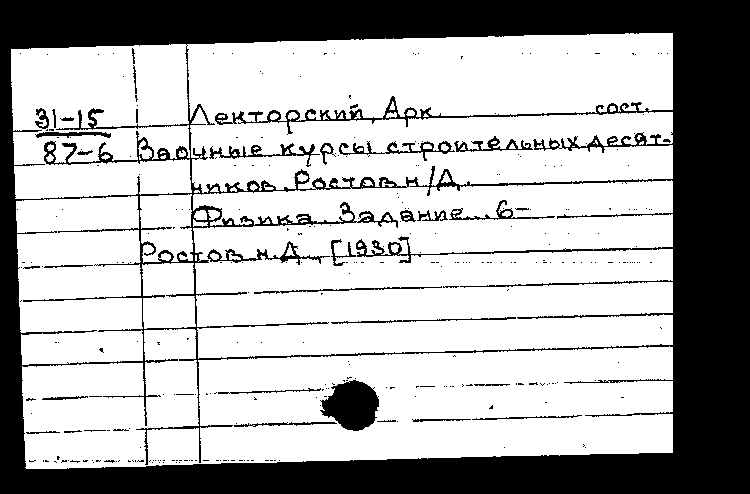 31-15 Лекторский, Арк. сост.
87-6 Заочные курсы строительных десят-
ников. Ростов н/Д.
Физика. Задание 6-
Ростов н.Д., [1930].